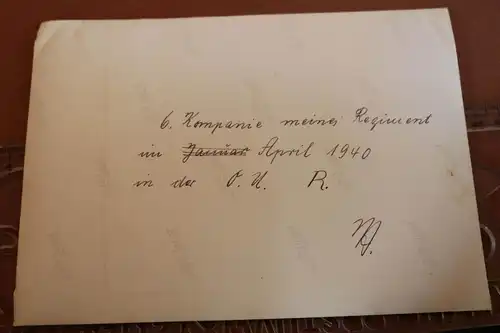 6. Kompanie meines Regiment
im Januar April 1940
in der O. U. R.